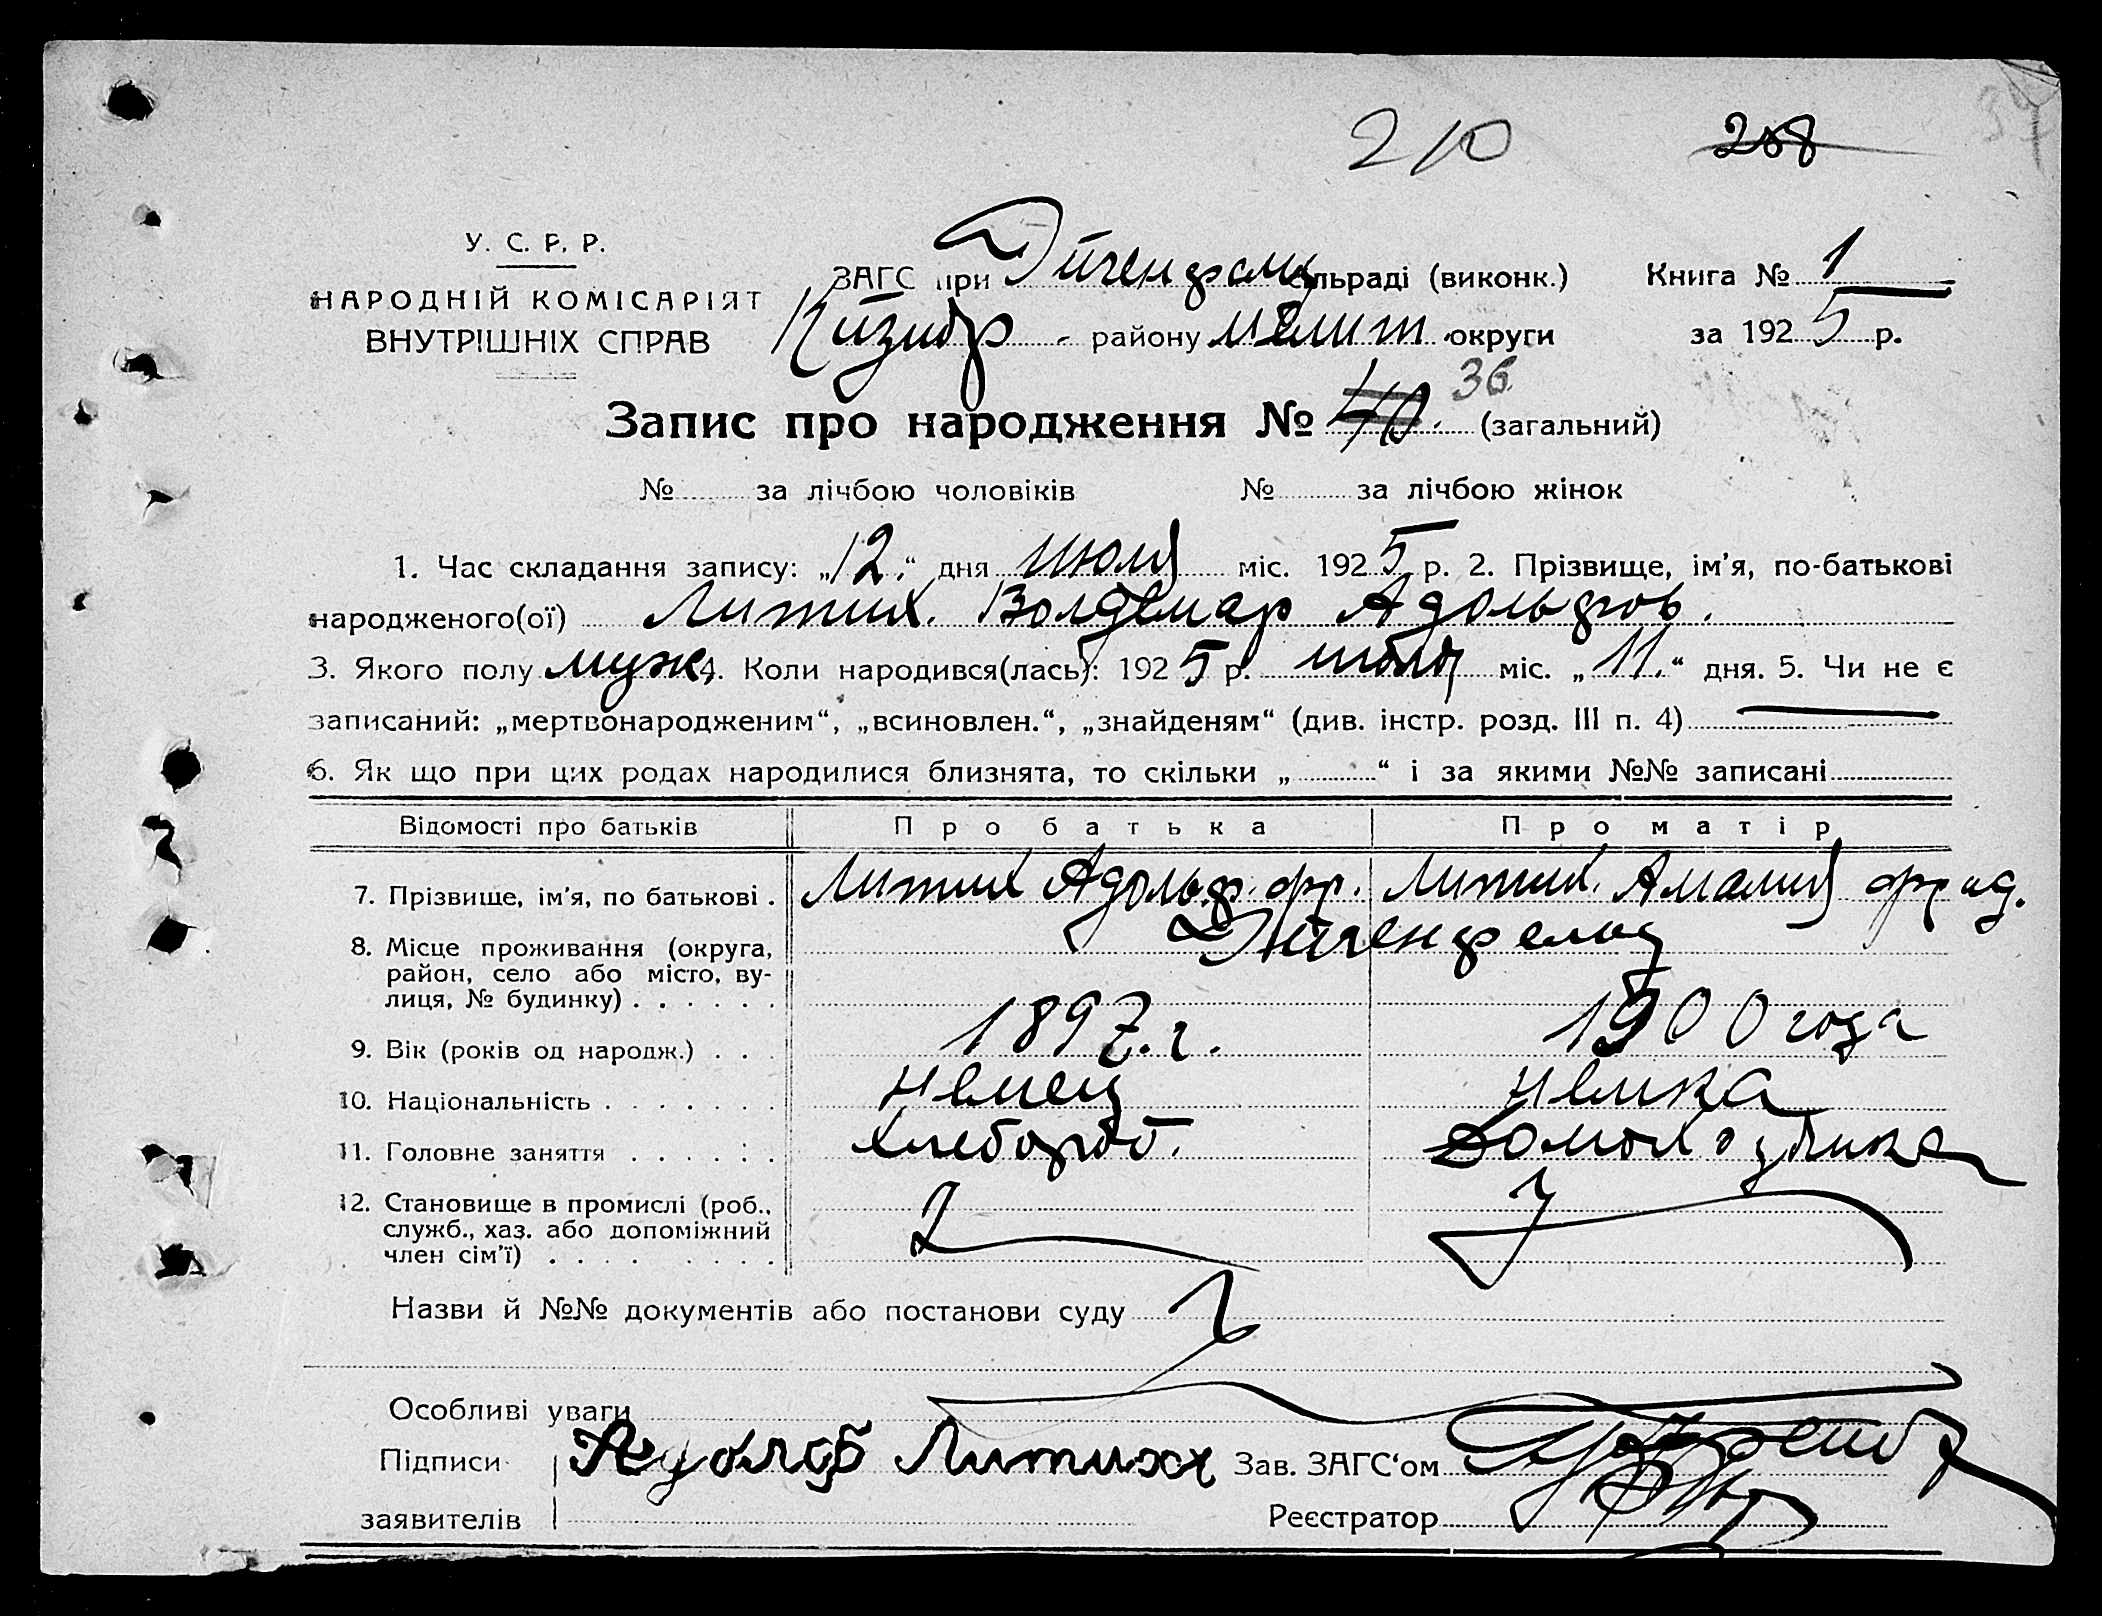 210 208
У. С. Р. Р.
НАРОДНІЙ КОМІСАРІЯТ
ВНУТРІШНІХ СПРАВ
ЗАГС при Эйгенфелд сільраді (виконк.) Книга № 1
району Мелит округи за 1925 р.
Запис про народження № 40. 36 (загальний)
№ за лічбою чоловіків № за лічбою жінок
1. Час складання запису: „12.“ дня июля міс. 1925 р. 2. Прізвище, ім'я, по-батькові
народженого(ої) Литих. Волдемар Адольфов.
3. Якого полу муж. 4. Коли народився(лась): 1925 р. июля міс. „11.“ дня. 5. Чи не є
записаний: „мертвонародженим“, „всиновлен.“, „знайденям“ (див. інстр. розд. III п. 4)
6. Як що при цих родах народилися близнята, то скільки „ “ і за якими №№ записані
Відомості про батьків Про батька Про матір
7. Прізвище, ім'я, по батькові . Литих Адольф. фр. Литих. Амалия фрид.
8. Місце проживання (округа, район, село або місто, вулиця, № будинку) . . . . . . Эйгенфелд
9. Вік (років од народж.) . . . 1897. г. 1900 года
10. Національність . . . . . . . немец немка
11. Головне заняття . . . . . . хлебороб. домохозяйка
12. Становище в промислі (роб., служб., хаз. або допоміжний член сім'ї) . . . . . . . .
Назви й №№ документів або постанови суду
Особливі уваги
Підписи Адолф Литихх Зав. ЗАГС'ом
заявителів Реєстратор